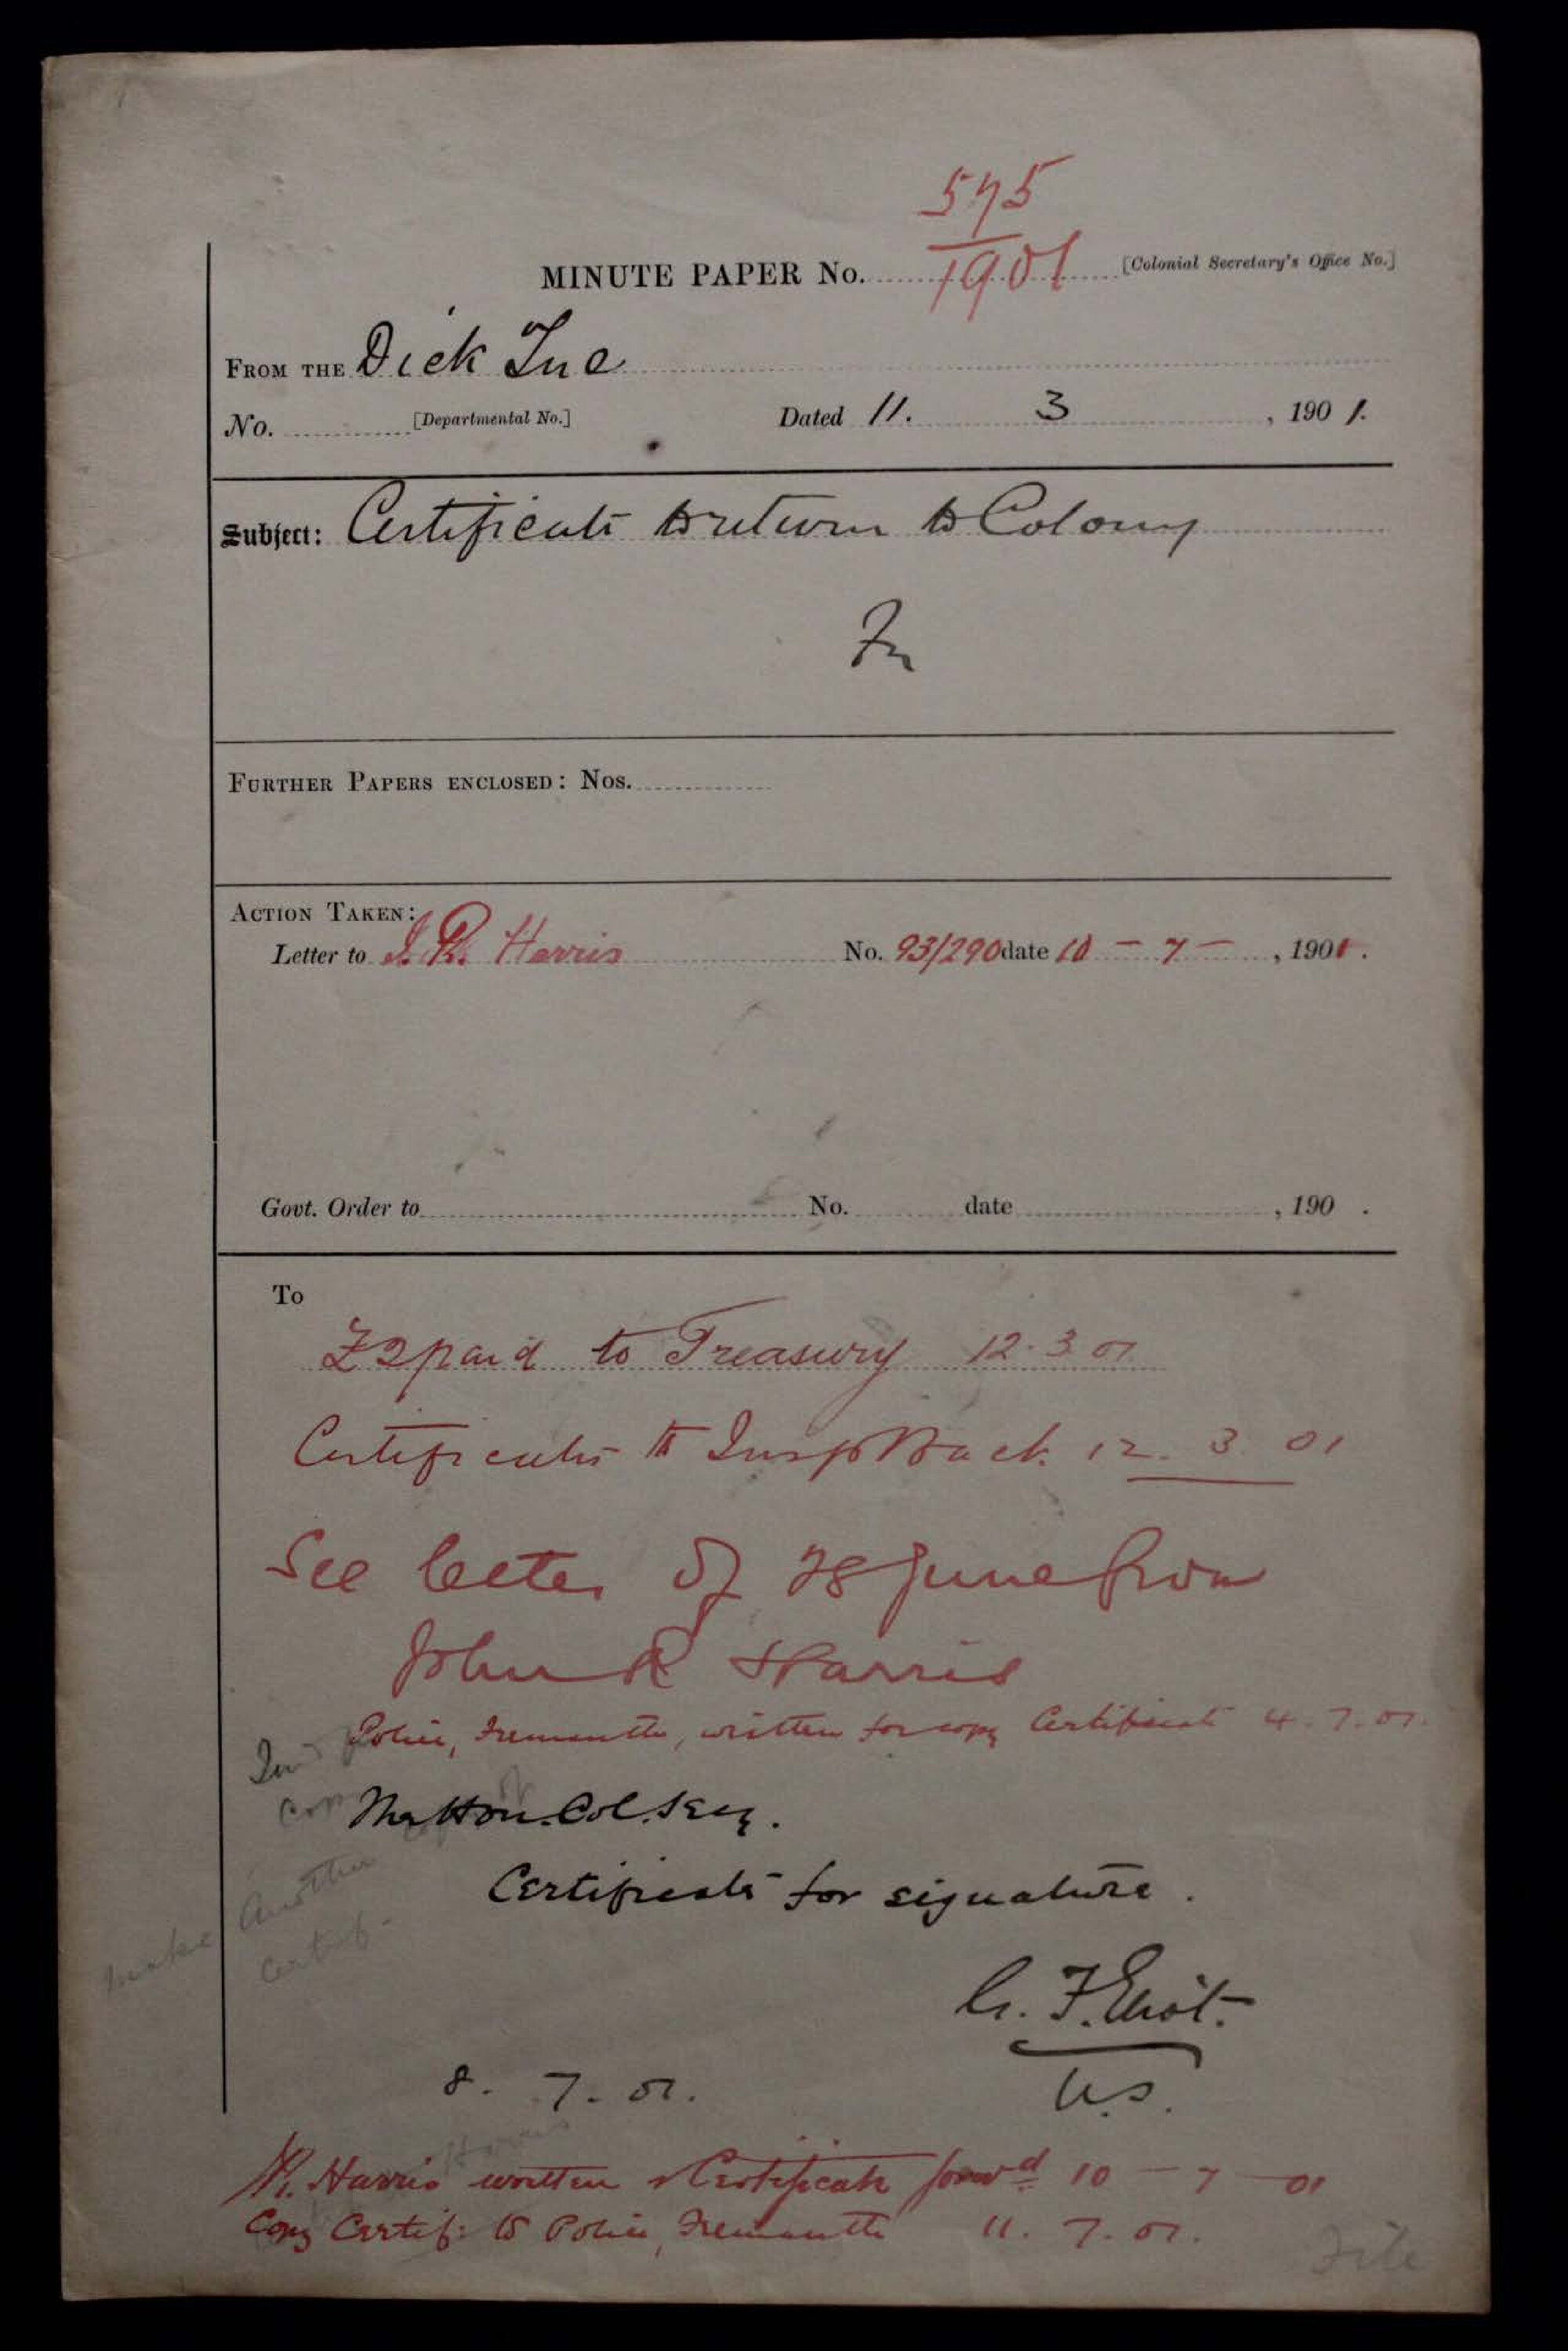 575
1901
MINUTE PAPER No. [Colonial Secretary's Office No.]
FROM THE Dick
No. [Departmental No.] Dated 11. 3 , 1901.
Subject: Certificate to return to Colony
FURTHER PAPERS ENCLOSED: Nos.
ACTION TAKEN:
Letter to J. R. Harris No. 93/290 date 10 - 7 - , 1901.
Govt. Order to No. date , 190 .
To
£2 paid to Treasury 12.3.01
Certificate to Insp 12. 3. 01
See letter of 28 June from
John R Harris
Police, Fremantle, written for copy Certificate 4.7.01.
The Hon. Col. Secy.
Certificate for signature.
make another
certif-
G. F. Eliot.
U.S.
8. 7. 01.
Harris written & Certificate forwd 10 - 7 - 01
Copy Certif: to Police, Fremantle 11. 7. 01.
File